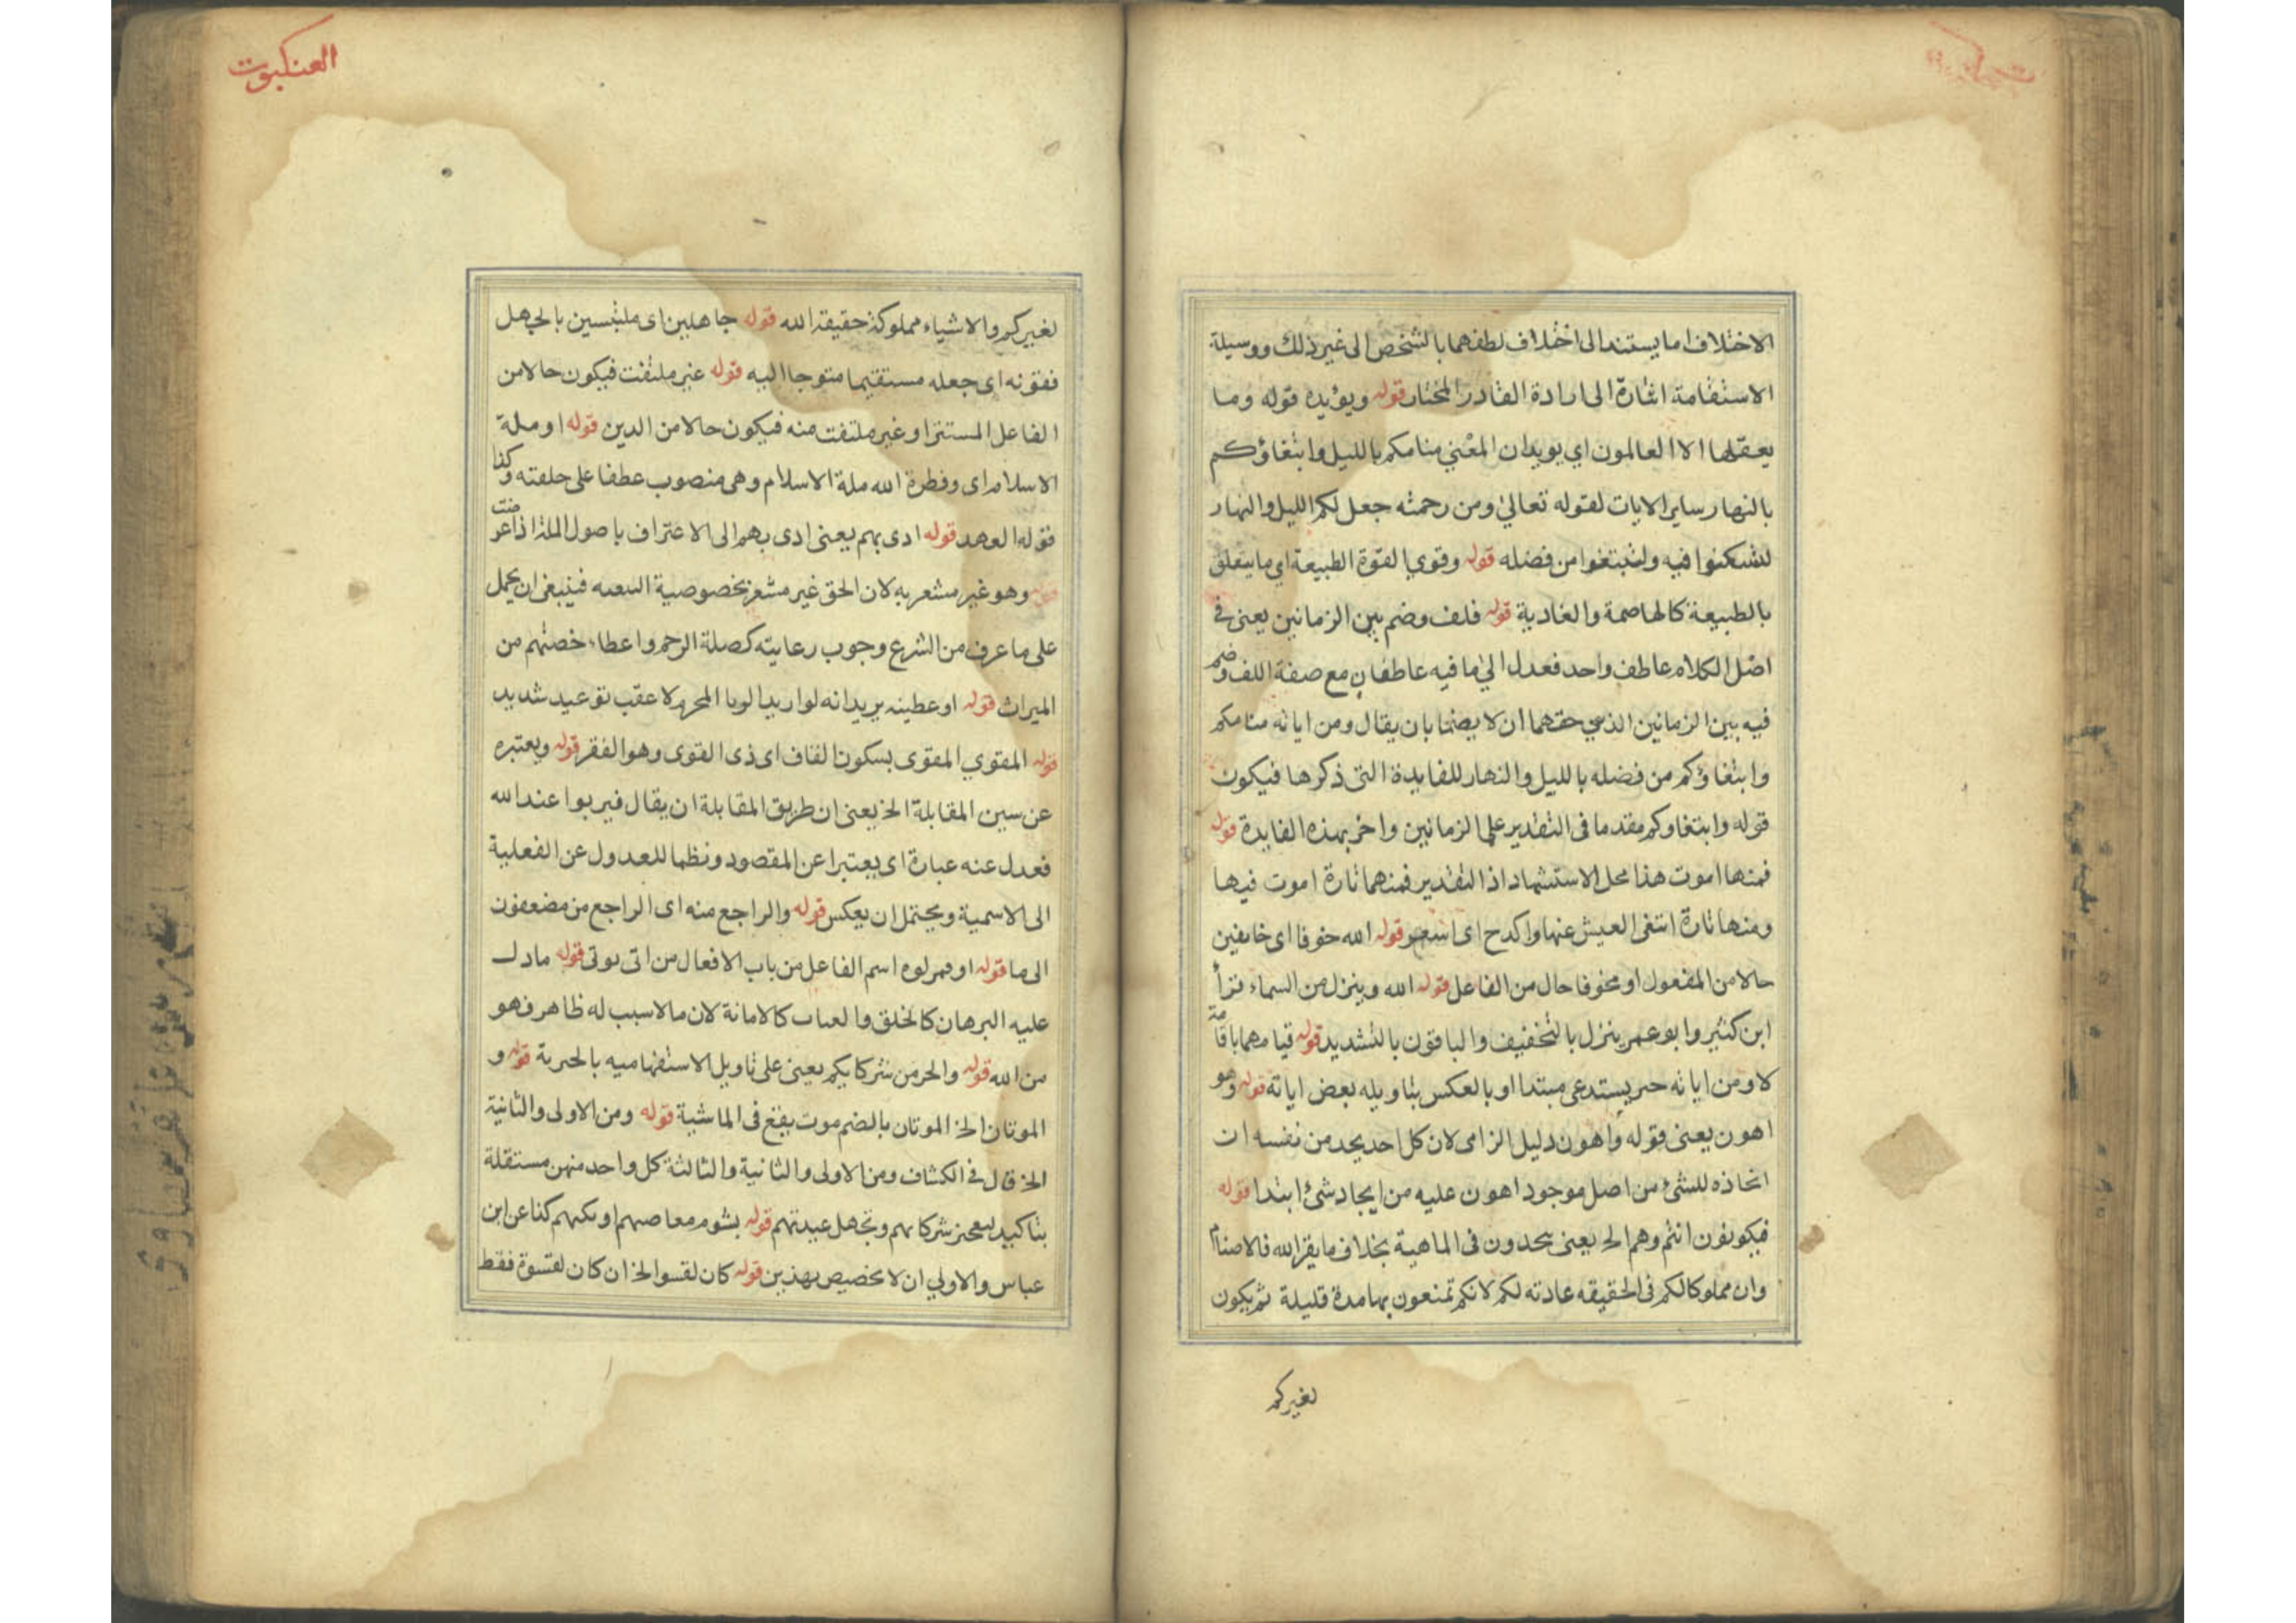 الاختلاف اما يستند الى اختلاف لطفهما بالشخص الى غير ذلك ووسيلة
الاستقامة اشارة الى ارادة القادر المختار قوله ويؤيده قوله وما
يعقلها الا العالمون اي يويد ان المعني منامكم بالليل وابتغاؤكم
بالنهار ساير الايات لقوله تعالى ومن رحمته جعل لكم الليل والنهار
لتسكنوا فيه ولتبتغوا من فضله قوله وقوي القوة الطبيعة اي ما يتعلق
بالطبيعة كالهاضمة والغادية قوله فلف وضم بين الزمانين يعنى فى
اصل الكلام عاطف واحد فعدل الى ما فيه عاطفان مع صفة اللف وضم
فيه بين الزمانين الذين حقهما ان لا يضما بان يقال ومن اياته منامكم
وابتغاؤكم من فضله بالليل والنهار للفايدة التى ذكرها فيكون
قوله وابتغاوكم مقدما فى التقدير على الزمانين واخر بهذه الفايدة قوله
فمنها اموت هذا محل الاستشهاد اذ التقدير فمنهما تارة اموت فيها
ومنها تارة ابتغى العيش عنها واكدح اى اسعى قوله الله خوفا اى خايفين
حالا من المفعول او مخوفا حال من الفاعل قوله الله وينزل من السماء قرأ
ابن كثير وابو عمر ينزل بالتخفيف والباقون بالتشديد قوله قيامهما باقامة
لا ومن اياته يستدعى مبتدا او بالعكس بتاويله بعض اياته قوله وهو
اهون يعنى قوله واهون دليل الزامى لان كل احد يجد من نفسه ان
اتخاذه للشئ من اصل موجود اهون عليه من ايجاد شئ ابتدا قوله
فيكونون انتم وهم الخ يعنى يتحدون فى الماهية بخلاف ما يقر الله فالاصنام
وان مملوكا لكم فى الحقيقه عادته لكم لانكم تمتعون بها مدة قليلة ثم يكون
لغيركم
العنكبوت
لغيركم والاشياء مملوكة حقيقة الله قوله جاهلين اى ملتبسين بالجهل
فقونه اى جعله مستقيما متوجا اليه قوله غير ملتفت فيكون حالا من
الفاعل المستتر او غير ملتفت منه فيكون حالا من الدين قوله او ملة
الاسلام اى وفطرة الله ملة الاسلام وهى منصوب عطفا على خلقته وكذا
فقوله العهد قوله ادى بهم يعنى ادى بهم الى الاعتراف باصول
وهو غير مشعر به لان الحق غير مشعر بخصوصية فينبغى ان يحمل
على ما عرف من الشرع وجوب رعايته كصلة الرحم واعطاء حصتهم من
الميراث قوله او عطينه يريد انه لو اريد الربا المحرم لاعقب توعيد شديد
قوله المقوي المقوى بسكون القاف اى ذى القوى وهو الفقر قوله ويعتبره
عن سين المقابلة الخ يعنى ان طريق المقابلة ان يقال فيربوا عند الله
فعدل عنه عبارة اى يعتبرا عن المقصود ونظما للعدول عن الفعلية
الى الاسمية ويحتمل ان يعكس قوله والراجع منه اى الراجع من مضعفون
الى ما قوله او فمولوه اسم الفاعل من باب الافعال من اتى يوتى قوله ما دل
عليه البرهان كالخلق والعباب كالامانة لان ما لا سبب له ظاهر فهو
من الله قوله والحر من شركايكم يعنى على تاويل الاستفهاميه بالخبرية قوله و
الموتان الخ الموتان بالضم موت يقع فى الماشية قوله ومن الاولى والثانية
الخ قال فى الكشاف ومن الاولى والثانية والثالثة كل واحد منهن مستقلة
بتاكيد لتعجيز شركائهم وتجهل عبدتهم قوله بشوم معاصيهم او كا عن ابن
عباس والاولي ان لا تخصيص بهذين قوله كان لقسوا الخ ان كان لقسوة فقط